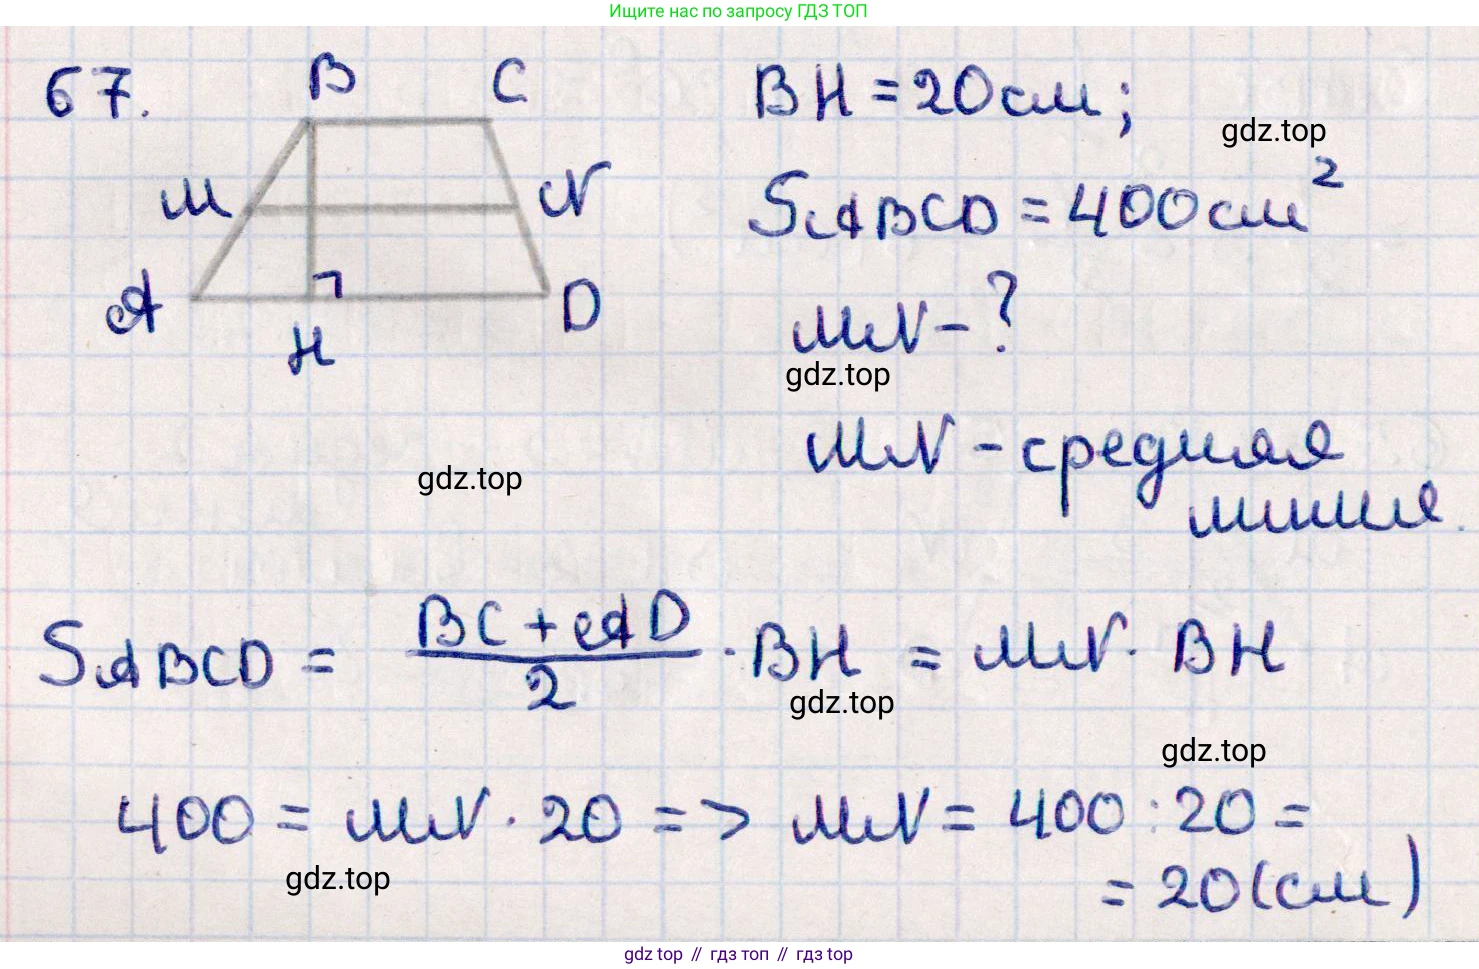 Ищите нас по запросу ГДЗ ТОП
67.
B C
M N
A D
H
BH = 20 см;
gdz.top
SABCD = 400 см²
MN - ?
gdz.top
MN - средняя
линия.
gdz.top
SABCD = BC + AD / 2 · BH = MN · BH
gdz.top
gdz.top
400 = MN · 20 => MN = 400 : 20 =
= 20 (см)
gdz.top
gdz top // гдз топ // гдз top